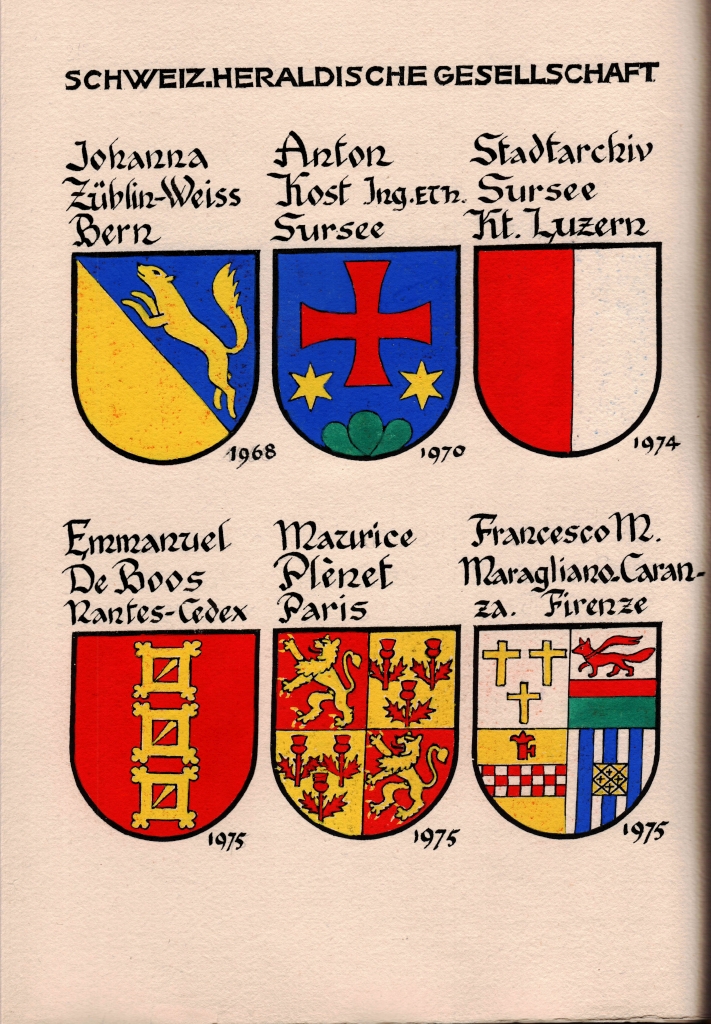 SCHWEIZ.HERALDISCHE GESELLSCHAFT
Johanna
Züblin-Weiss
Bern
1968
Anton
Kost Ing.ETH.
Sursee
1970
Stadtarchiv
Sursee
Kt. Luzern
1974
Emmanuel
De Boos
Nantes-Cedex
1975
Maurice
Plènet
Paris
1975
Francesco M.
Maragliano-Caran-
za. Firenze
1975